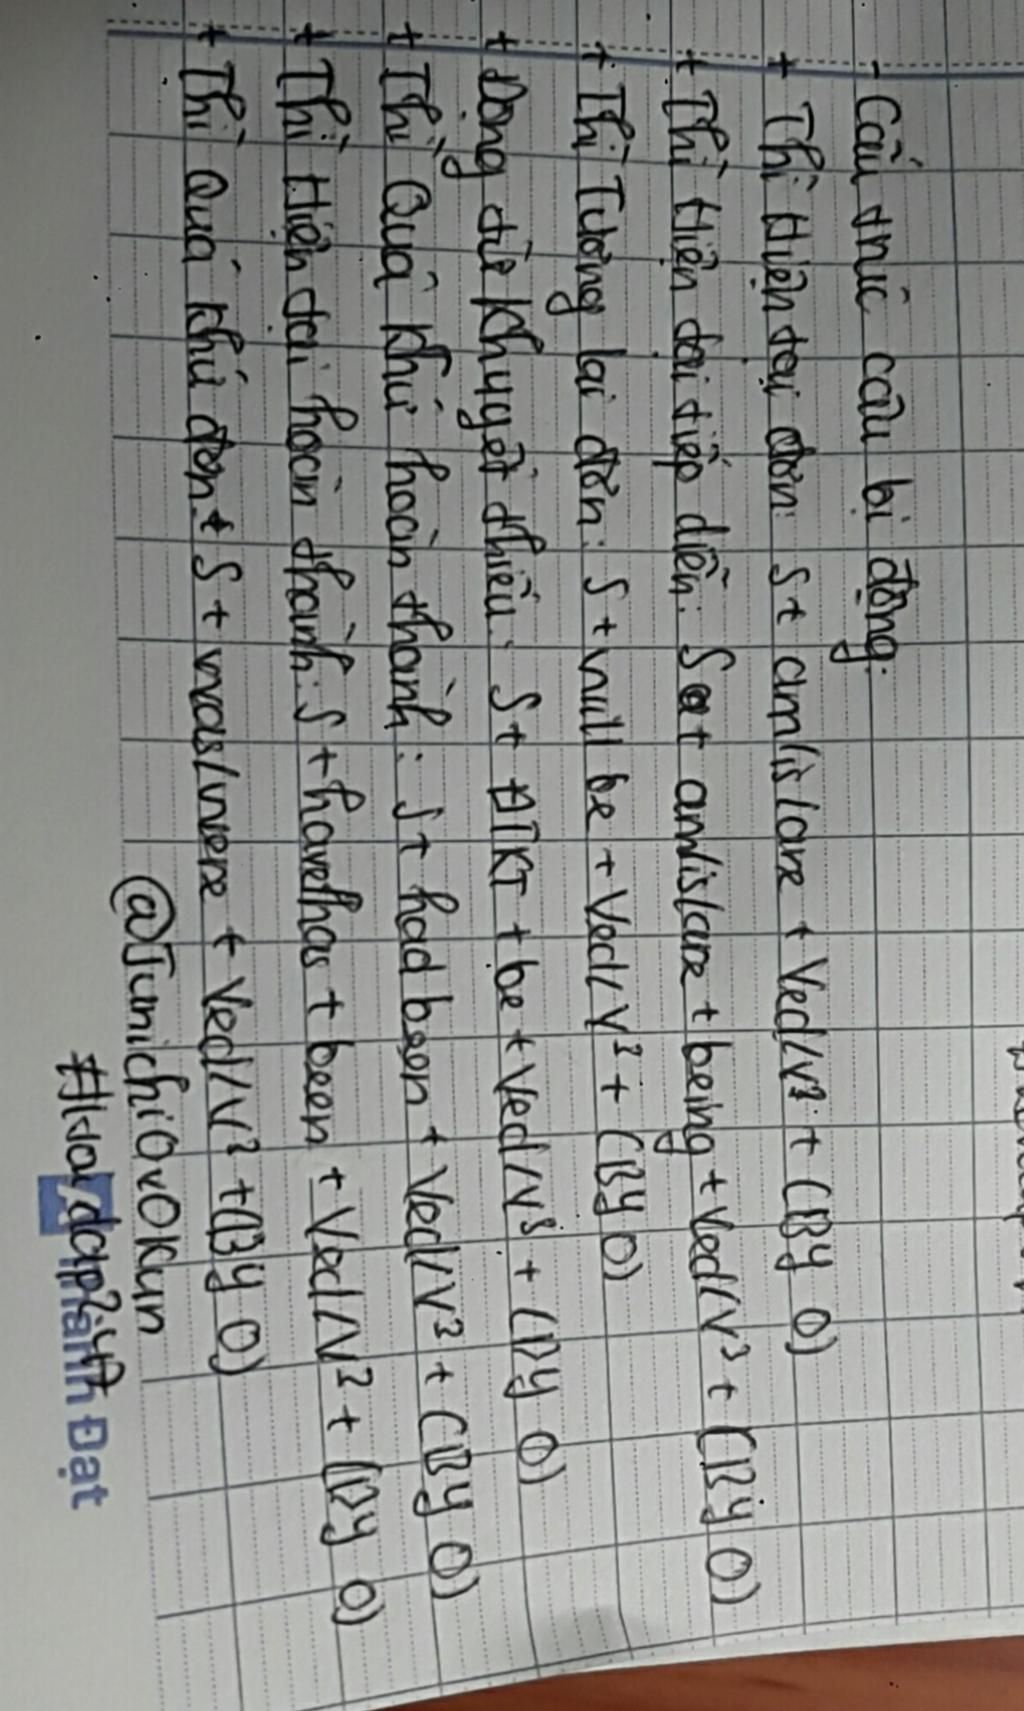 - Cấu trúc câu bị động:
+ Thì Hiện tại đơn: S + am/is/are + Ved/V³ + (By O)
+ Thì Hiện tại tiếp diễn: S + am/is/are + being + Ved/V³ + (By O)
+ Thì Tương lai đơn: S + will be + Ved/V³ + (By O)
+ Động từ khuyết thiếu: S + ĐTKT + be + Ved/V³ + (By O)
+ Thì Quá khứ hoàn thành: S + had been + Ved/V³ + (By O)
+ Thì Hiện tại hoàn thành: S + have/has + been + Ved/V³ + (By O)
+ Thì Quá khứ đơn: S + was/were + Ved/V³ + (By O)
@JunichiOvOKun
Thành Đạt